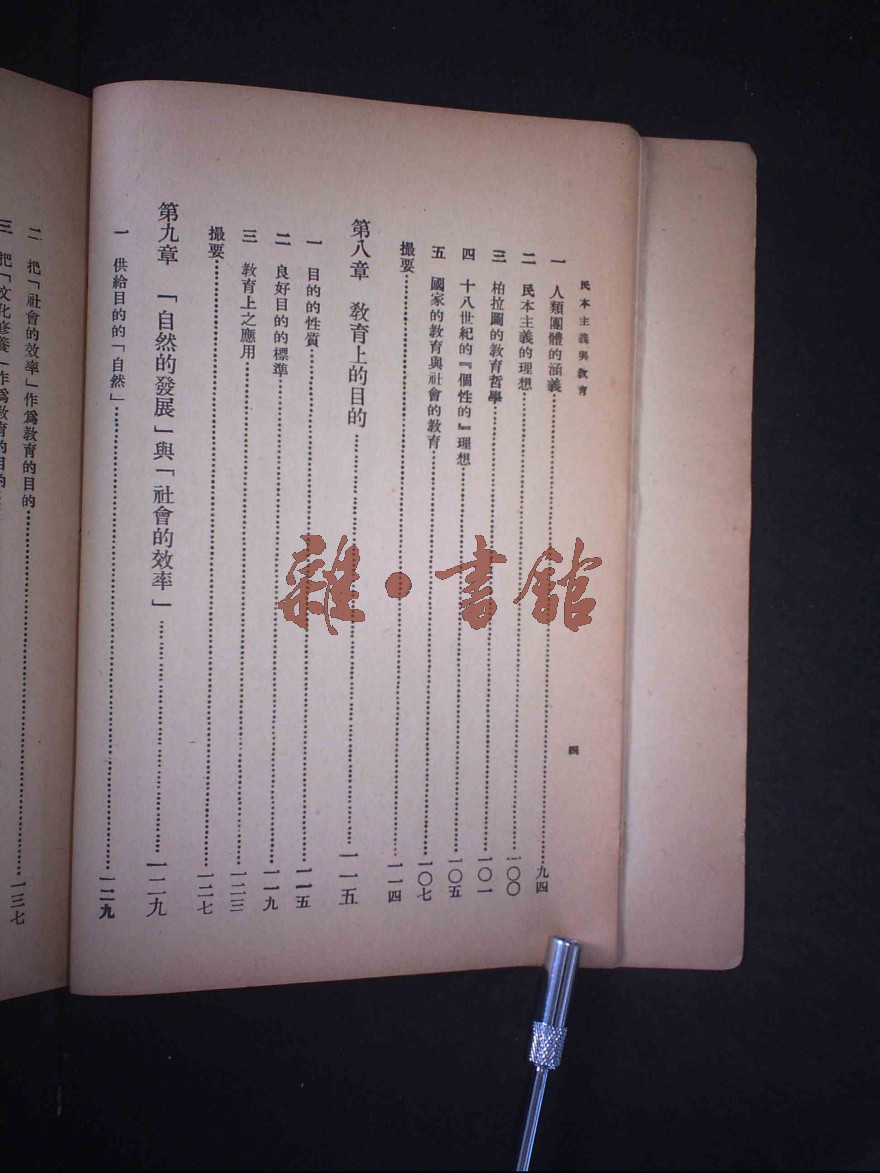 民本主義與教育
四
一 人類團體的涵義……九四
二 民本主義的理想……一〇〇
三 柏拉圖的教育哲學……一〇一
四 十八世紀的『個性的』理想……一〇五
五 國家的教育與社會的教育……一〇七
撮要……一一四
第八章 教育上的目的……一一五
一 目的的性質……一一五
二 良好目的的標準……一一九
三 教育上之應用……一二三
撮要……一二七
第九章 「自然的發展」與「社會的效率」……一二九
一 供給目的的「自然」……一二九
二 把「社會的效率」作爲教育的目的……一三七
三 把「文化修養」作爲教育的目的
雜·書館